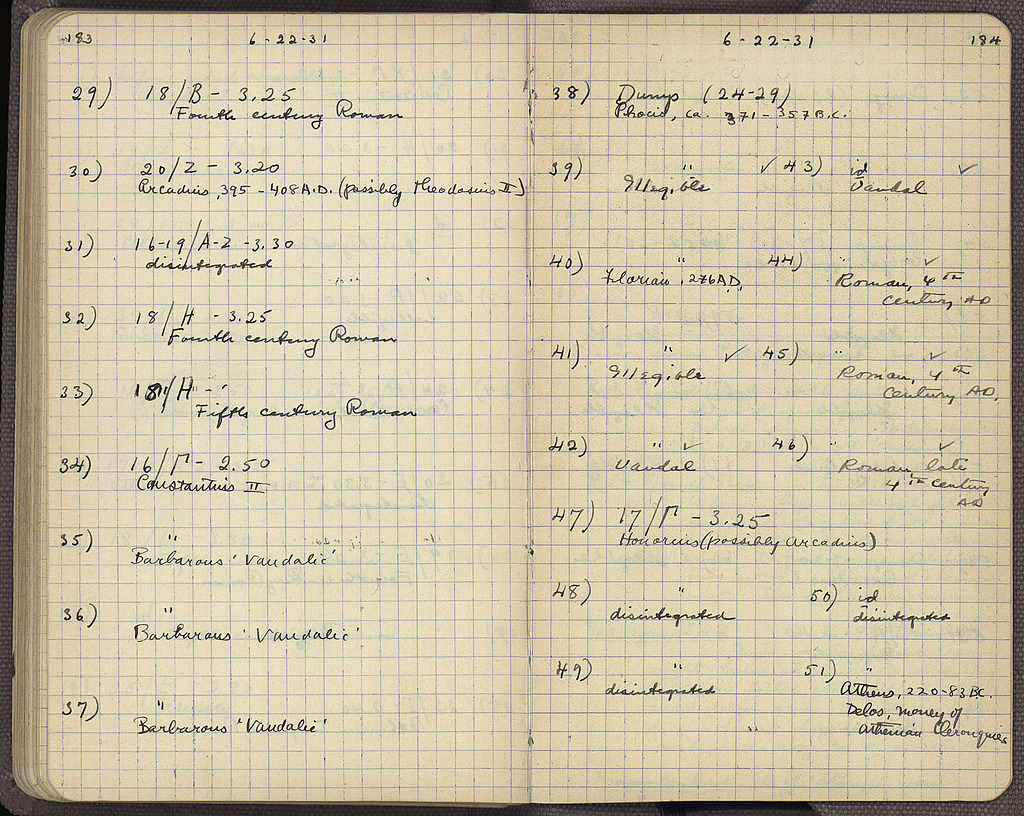 183
6-22-31
29) 18/B - 3.25
Fourth century Roman
30) 20/Z - 3.20
Arcadius, 395-408 A.D. (possibly Theodosius II)
31) 16-19/A-Z - 3.30
disintegrated
32) 18/H - 3.25
Fourth century Roman
33) 18/H - "
Fifth century Roman
34) 16/Γ - 2.50
Constantius II
35) "
Barbarous 'Vandalic'
36) "
Barbarous 'Vandalic'
37) "
Barbarous 'Vandalic'
6-22-31
184
38) Dump (24-29)
Phocis, ca. 371-357 B.C.
39) " ✓
Illegible
40) "
Florian, 276 A.D.
41) " ✓
Illegible
42) " ✓
Vandal
43) id ✓
Vandal
44) " ✓
Roman, 4th
century AD
45) " ✓
Roman, 4th
century AD.
46) " ✓
Roman, late
4th century
AD
47) 17/Γ - 3.25
Honorius (possibly Arcadius)
48) "
disintegrated
49) "
disintegrated
50) id
disintegrated
51) "
Athens, 220-83 B.C.
Delos, money of
Athenian Clerouquies